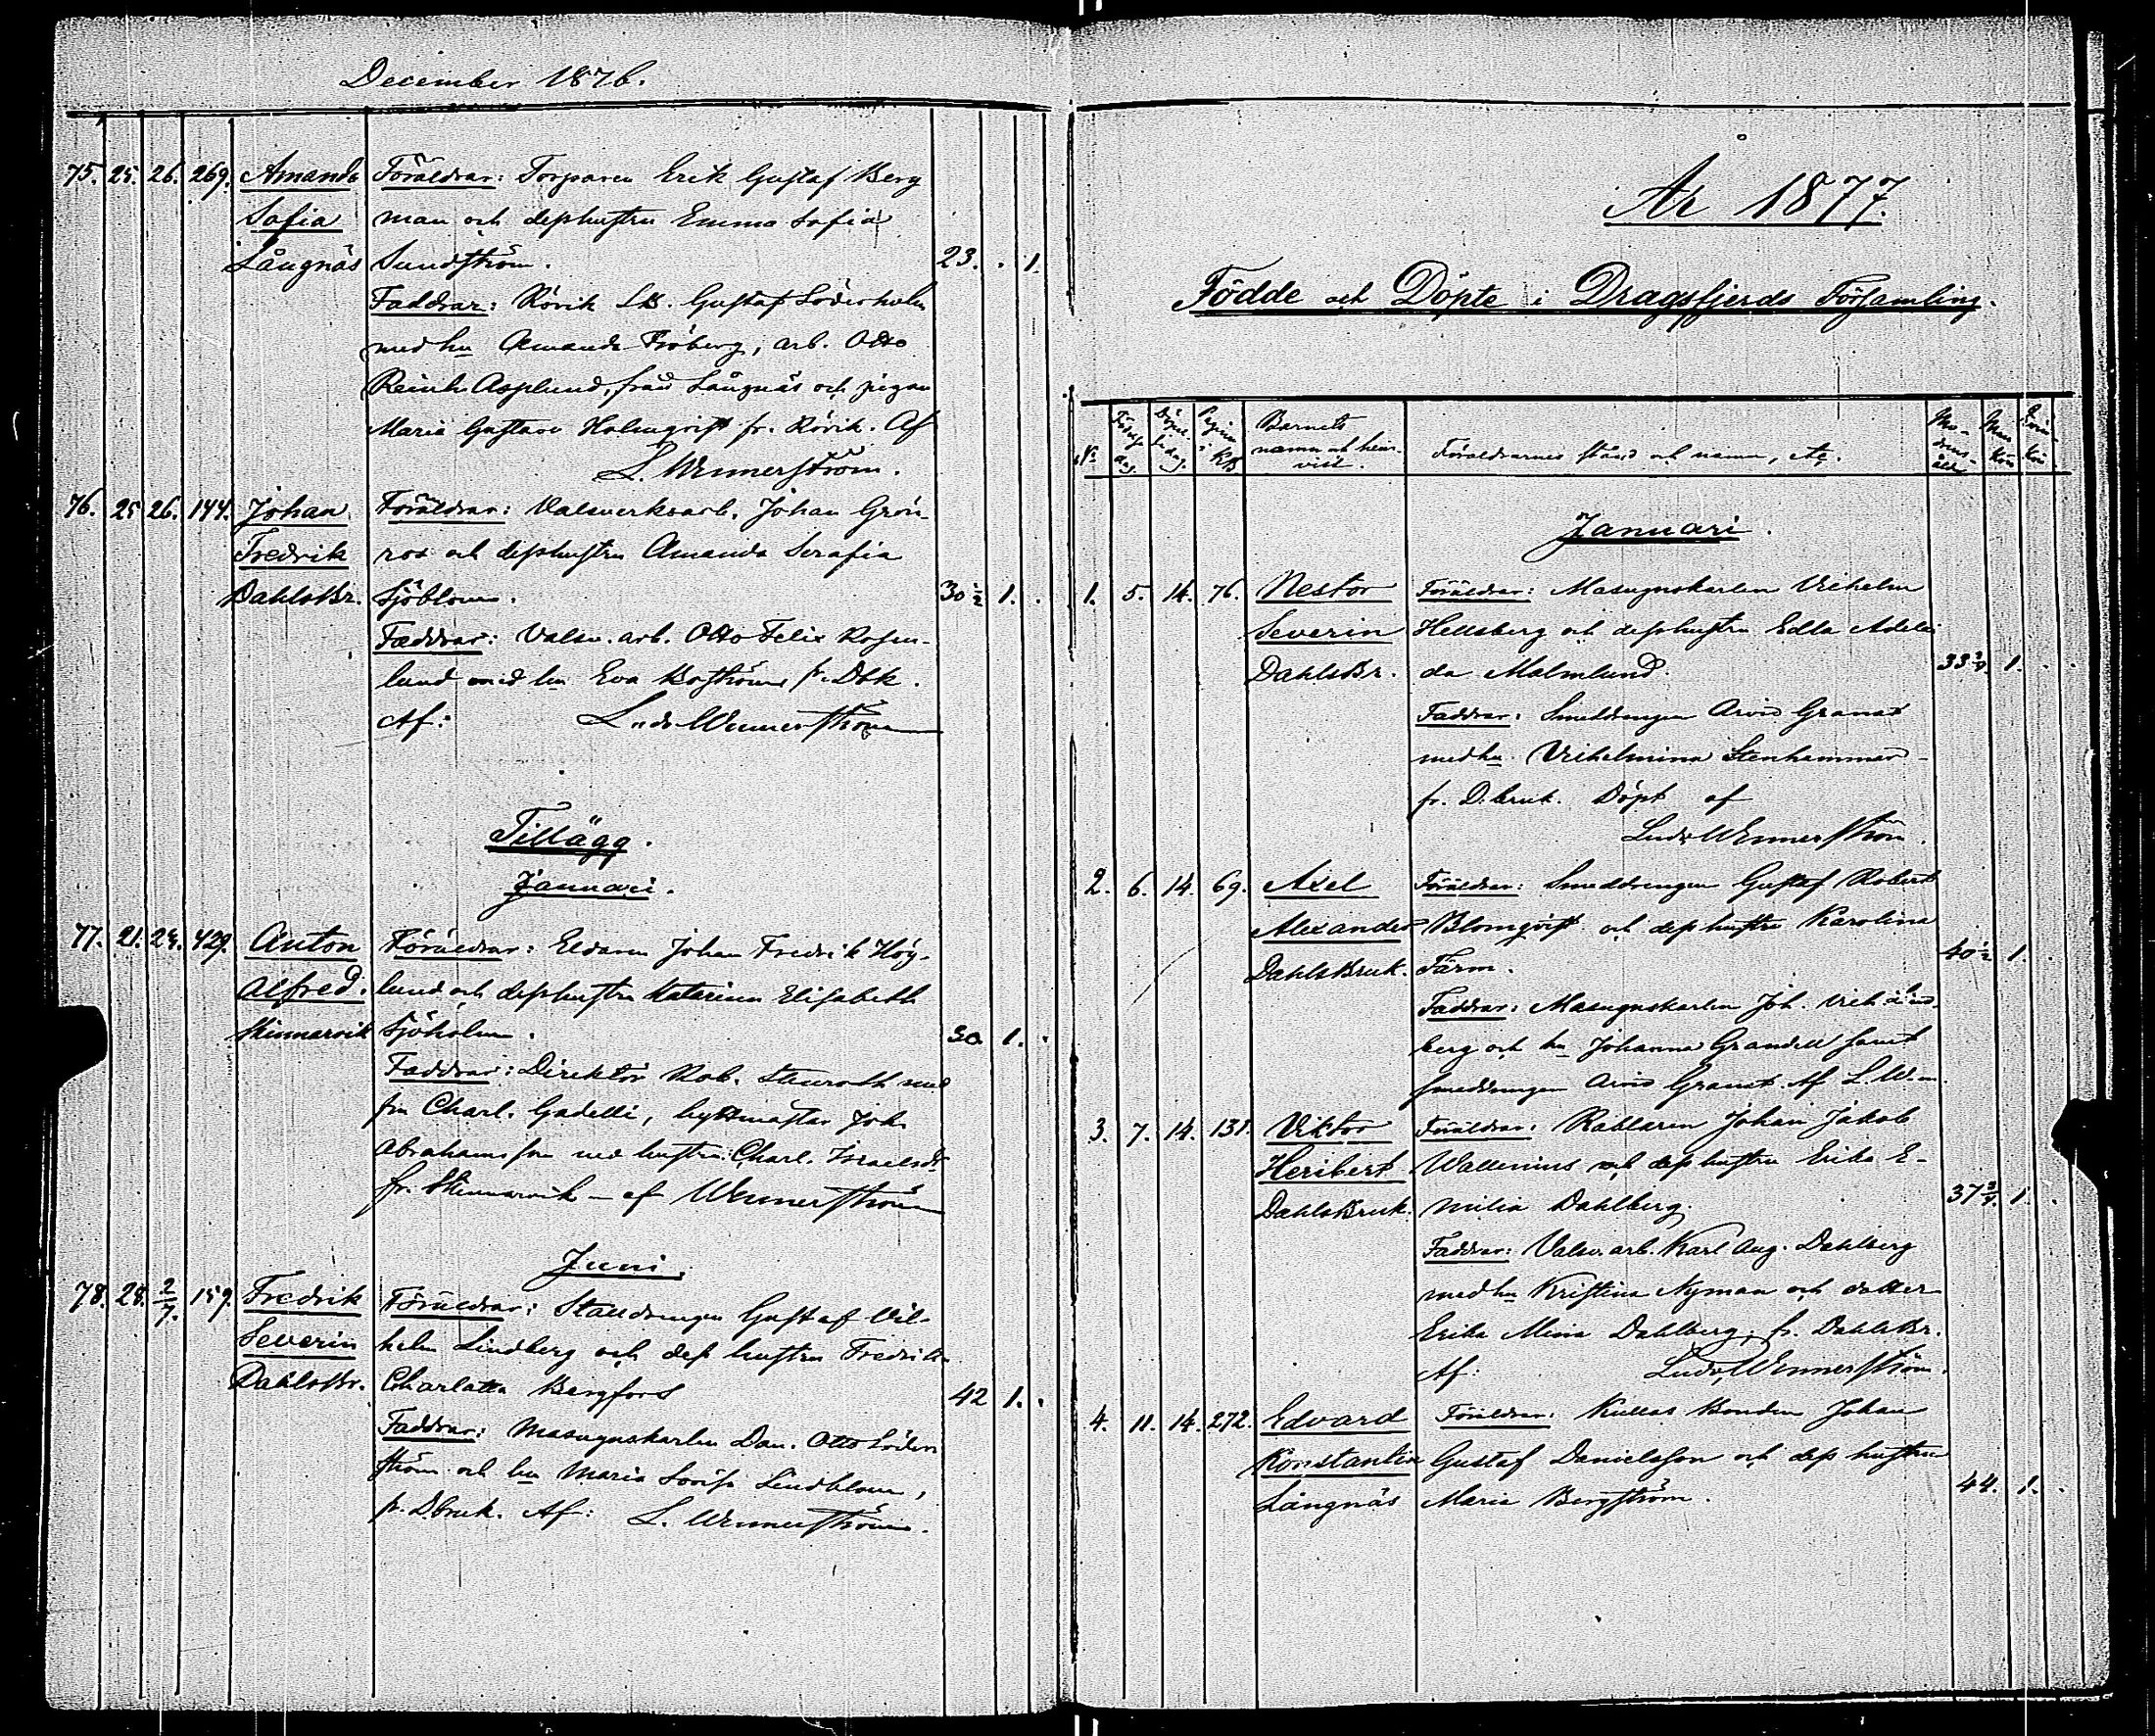 December 1876.
75. 25. 26. 269. Amanda Föräldrar: Torparen Erik Gustaf Berg
Sofia man och dess hustru Emma Sofia
Långnäs Sundström. 23. . 1.
Faddrar: Rövik Gustaf Söderholm
med hu Amanda Fröberg, arb. Otto
Reinh. Asplund, från Långnäs och pigan
Maria Gustava Holmqvist fr. Rövik. Af
L. Wennerström.
76. 25 26. 144. Johan Föräldrar: Valsverksarb. Johan Grön-
Fredrik roos och dess hustru Amanda Serafia
Dahlsbr. Sjöblom. 30 1/2 1. .
Faddrar: Valsv. arb. Otto Felix Rosen-
lund med hu Eva Boström fr. Dbk.
Af: Ludv Wennerström
Tillägg.
Januari.
77. 21. 24. 429. Anton Föräldrar: Eldaren Johan Fredrik Hög-
Alfred. lund och dess hustru Katarina Elisabeth
Skinnarvik Sjöholm. 30 1. .
Faddrar: Direktör Rob. med
fru Charl. Gadelli, hyttmästar Joh.
Abrahamsson med hustru: Charl. Israelsdr
fr. Skinnarvik - af Wennerström
Juni.
78. 28. 2/7. 159. Fredrik Föräldrar: Stalldrengen Gustaf Vil-
Severin helm Lindberg och dess hustru Fredrika
Dahlsbr. Charlotta Bergfors 42 1. .
Faddrar: Masugnskarlen Dan. Otto Söder
ström och hu Maria Lovisa Lindblom,
fr. D.bruk. Af: L. Wennerström.
År 1877.
Födde och Döpte i Dragsfjerds Församling.
No Födelse dag. Döpelse dag. Pagina i KB Barnets namn och hemvist. Föräldrarnes stånd och namn, etc. Modrens ålder Man kön Qvin kön
Januari.
1. 5. 14. 76. Nestor Föräldrar: Masugnskarlen Vilhelm
Severin Hellsberg och dess hustru Edla Adelai
Dahlsbr. da Malmlund. 33 3/4 1. .
Faddrar: Smeddrengen Arvid Granat
med hu Vilhelmina Stenhammar
fr. D.bruk. Döpt af
Ludv Wennerström.
2. 6. 14. 69. Axel Föräldrar: Smeddrengen Gustaf Robert
Alexander Blomqvist och dess hustru Karolina
Dahlsbruk. Färm. 40 1/2 1. .
Faddrar: Masugnskarlen Joh. Vilh. Lind-
berg och hu Johanna Grandell samt
smeddrengen Arvid Granat. Af L. W-m.
3. 7. 14. 131. Viktor Föräldrar: Rablaren Johan Jakob
Heribert Wallenius och dess hustru Erika E-
Dahlsbruk. milia Dahlberg. 37 3/4. 1. .
Faddrar: Valsv. arb. Karl Aug. Dahlberg
med hu Kristina Nyman och dotter
Erika Mina Dahlberg, fr. Dahlsbr.
Af: Ludv. Wennerström.
4. 11. 14. 272. Edvard Föräldrar: Kullas Bonden Johan
Konstantin Gustaf Danielsson och dess hustru
Långnäs Maria Bergström. 44. 1. .